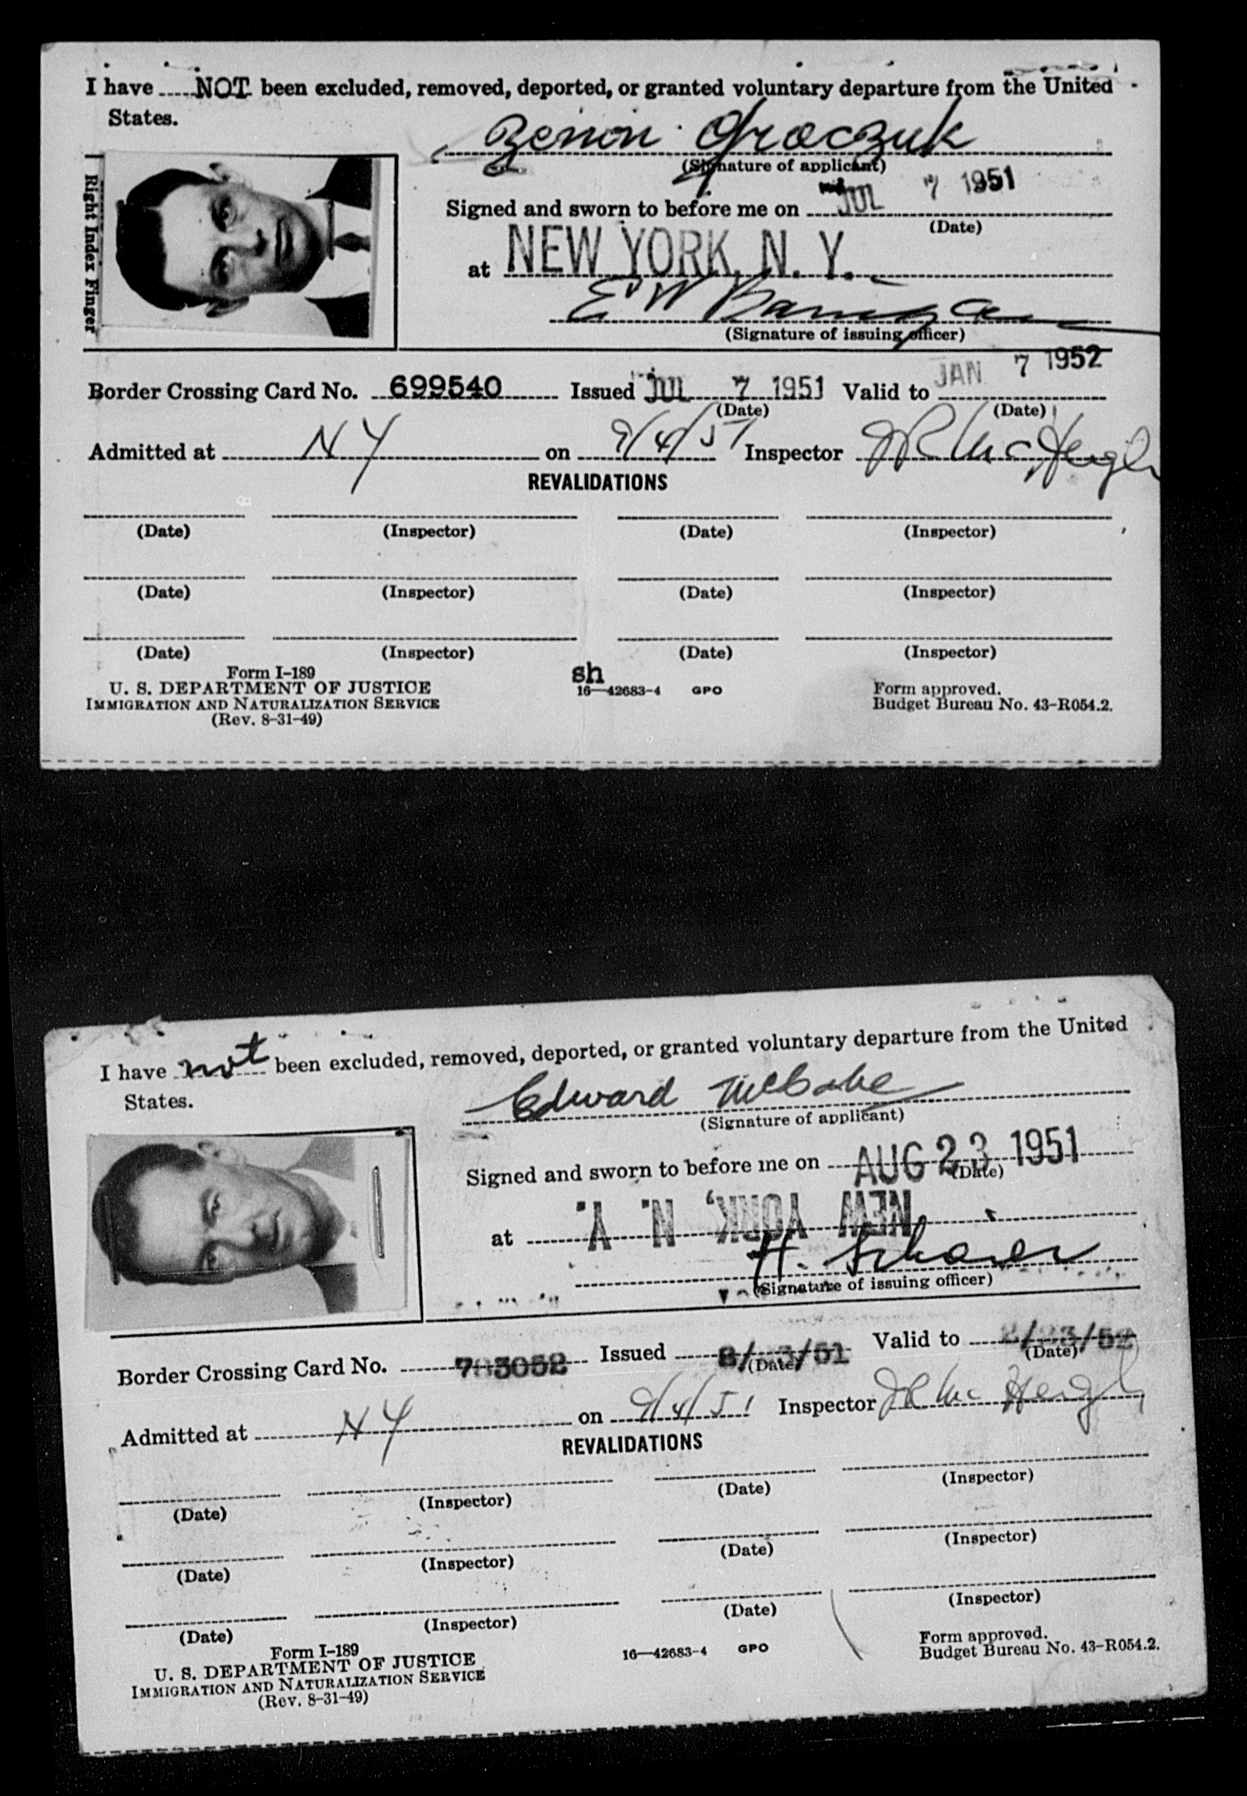 I have NOT been excluded, removed, deported, or granted voluntary departure from the United
States.
Zenon Graczuk
(Signature of applicant)
Right Index Finger
Signed and sworn to before me on JUL 7 1951
(Date)
at NEW YORK, N. Y.
E W
(Signature of issuing officer)
Border Crossing Card No. 699540 Issued JUL 7 1951 Valid to JAN 7 1952
(Date) (Date)
Admitted at NY on 9/4/51 Inspector
REVALIDATIONS
(Date) (Inspector) (Date) (Inspector)
(Date) (Inspector) (Date) (Inspector)
(Date) (Inspector) (Date) (Inspector)
Form I-189
sh
U. S. DEPARTMENT OF JUSTICE 16—42683-4 GPO Form approved.
IMMIGRATION AND NATURALIZATION SERVICE Budget Bureau No. 43-R054.2.
(Rev. 8-31-49)
I have not been excluded, removed, deported, or granted voluntary departure from the United
States.
Edward McCabe
(Signature of applicant)
Signed and sworn to before me on AUG 23 1951
(Date)
at NEW YORK, N. Y.
H.
(Signature of issuing officer)
Border Crossing Card No. Issued 8/23/51 Valid to 2/23/52
(Date) (Date)
Admitted at NY on 9/4/51 Inspector
REVALIDATIONS
(Date) (Inspector) (Date) (Inspector)
(Date) (Inspector) (Date) (Inspector)
(Date) (Inspector) (Date) (Inspector)
Form I-189
U. S. DEPARTMENT OF JUSTICE 16—42683-4 GPO Form approved.
IMMIGRATION AND NATURALIZATION SERVICE Budget Bureau No. 43-R054.2.
(Rev. 8-31-49)